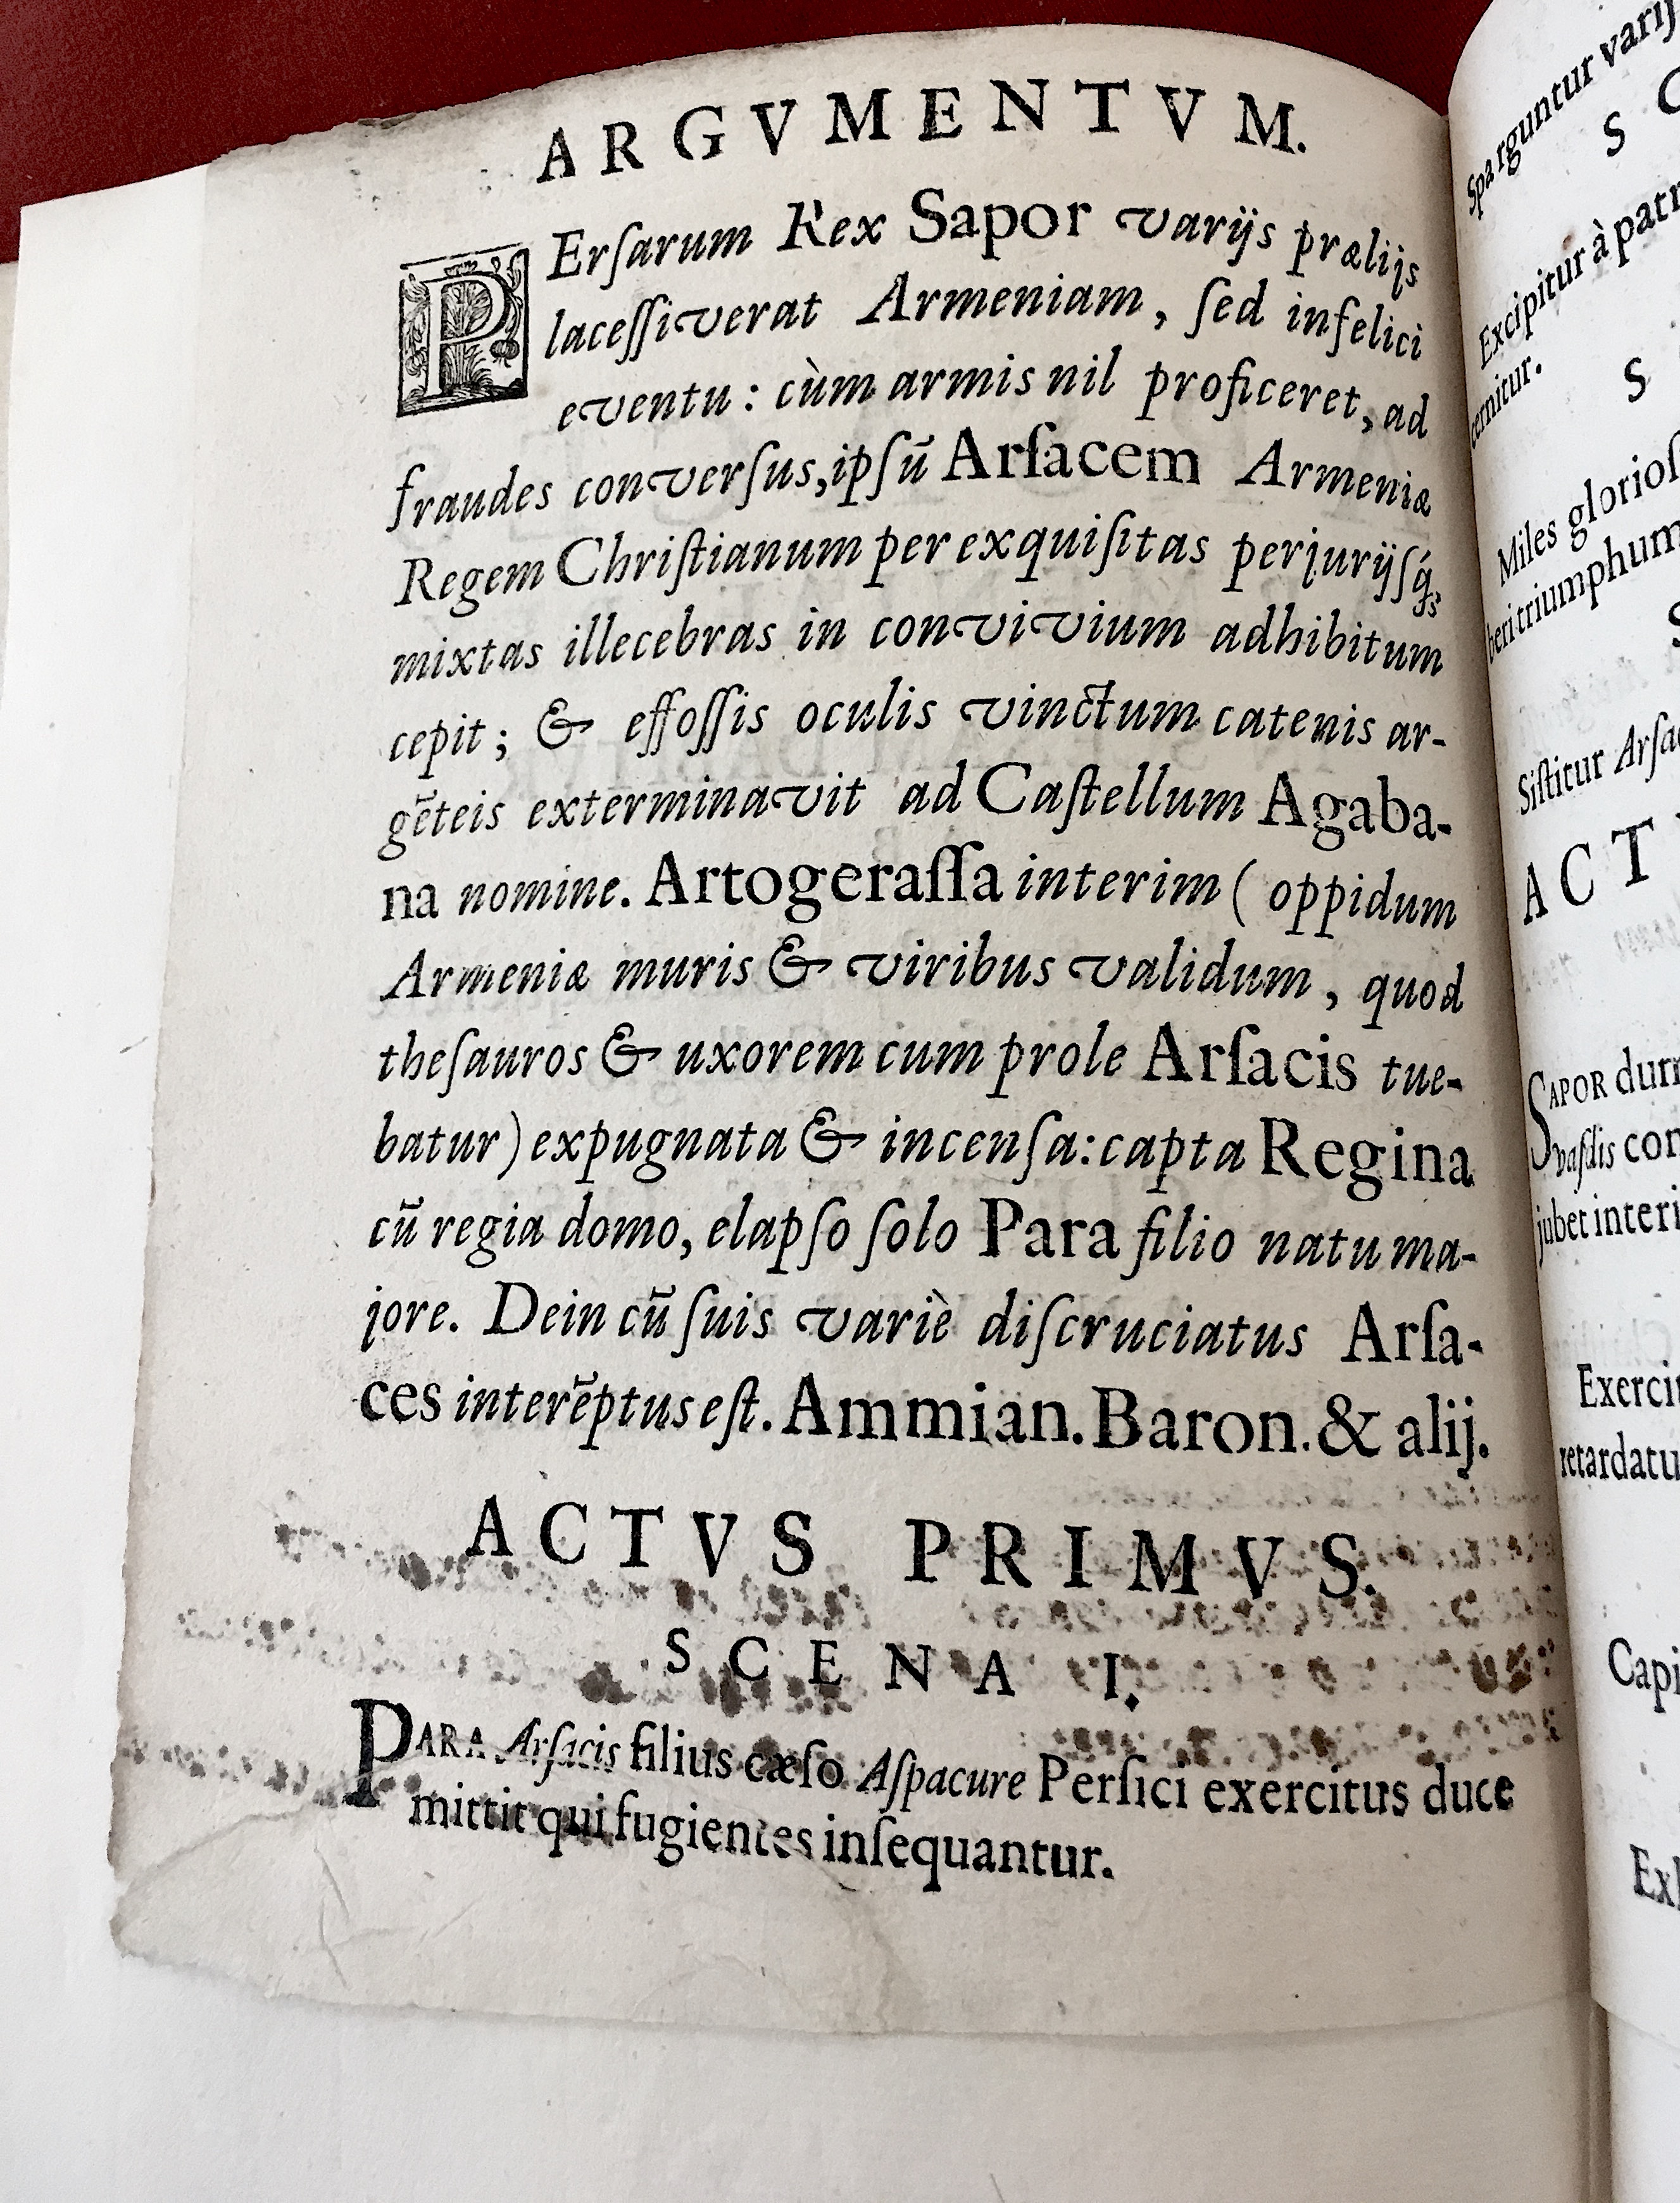 ARGVMENTVM.
PErſarum Rex Sapor varijs prælijs
laceſſiverat Armeniam, ſed infelici
eventu: cùm armis nil proficeret, ad
fraudes converſus, ipſū Arſacem Armeniæ
Regem Chriſtianum per exquiſitas perjurijſq́;
mixtas illecebras in convivium adhibitum
cepit; & effoſſis oculis vinctum catenis ar-
gēteis exterminavit ad Caſtellum Agaba-
na nomine. Artogeraſſa interim ( oppidum
Armeniæ muris & viribus validum, quod
theſauros & uxorem cum prole Arſacis tue-
batur) expugnata & incenſa: capta Regina
cū regia domo, elapſo ſolo Para filio natu ma-
jore. Dein cū ſuis variè diſcruciatus Arſa-
ces interēptus eſt. Ammian. Baron. & alij.
ACTVS PRIMVS.
SCENA I.
PARA Arſacis filius cæſo Aſpacure Perſici exercitus duce
mittit qui fugientes inſequantur.
Sparguntur varij
S C
Excipitur à patr
cernitur.
S
Miles glorioſ
beri triumphum
S
Siſtitur Arſac
ACT
SAPOR durr
vaſdis con
jubet interi
Exerci
retardatu
Capi
Exl